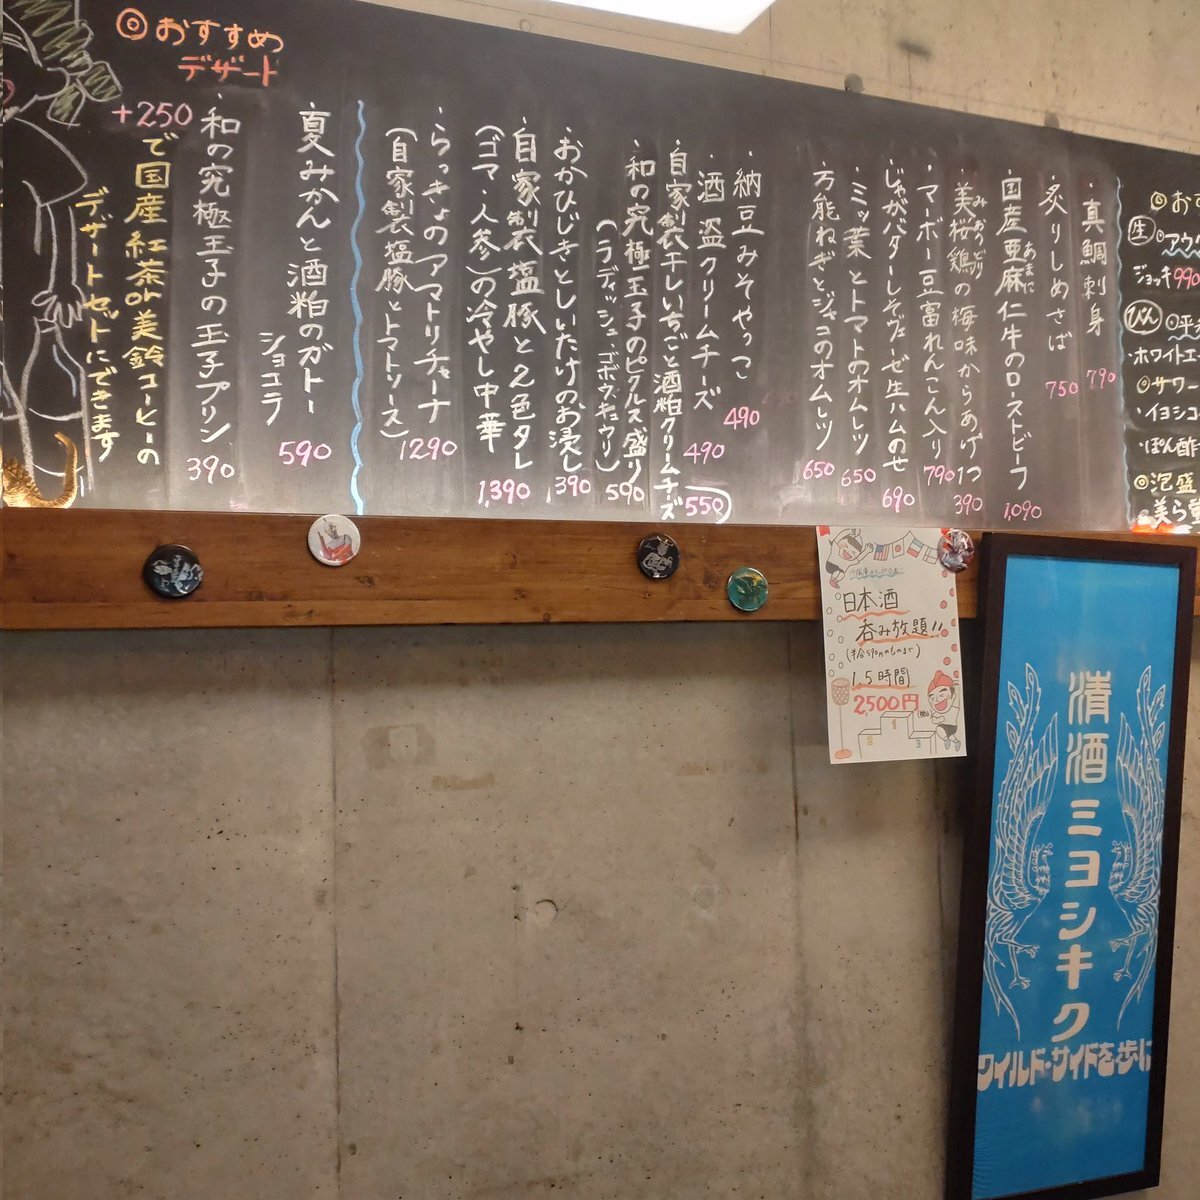 ◎おす
生
◎アウグ
ジョッキ990
びん
◎平
・ホワイトエ
◎サワー
・イヨシコ
・ぽん酢
◎泡盛
美ら
・真鯛刺身 790
・炙りしめさば 750
・国産亜麻仁牛のローストビーフ 1,090
あまに
・美桜鶏の梅味からあげ 1つ 390
みおうどり
・マーボー豆富れんこん入り 790
・じゃがバターしそヴェーゼ生ハムのせ 690
・ミツ葉とトマトのオムレツ 650
・万能ねぎとジャコのオムレツ 650
・納豆みそやっこ 490
・酒盗クリームチーズ 490
・自家製干しいちごと酒粕クリームチーズ 550
・和の究極玉子のピクルス盛り 590
(ラディッシュ、ゴボウ、キュウリ)
・おかひじきとしいたけのお浸し 390
・自家製塩豚と2色タレ
(ゴマ・人参)の冷やし中華 1,390
・らっきょのアマトリチャーナ 1290
(自家製塩豚とトマトソース)
◎おすすめ
デザート
・夏みかんと酒粕のガトー
ショコラ 590
・和の究極玉子の玉子プリン 390
+250で国産紅茶or美鈴コーヒーの
デザートセットにできます
日本酒
呑み放題!!
1.5時間
2500円
1
2
3
清酒ミヨシキク
ワイルド・サイドを歩け